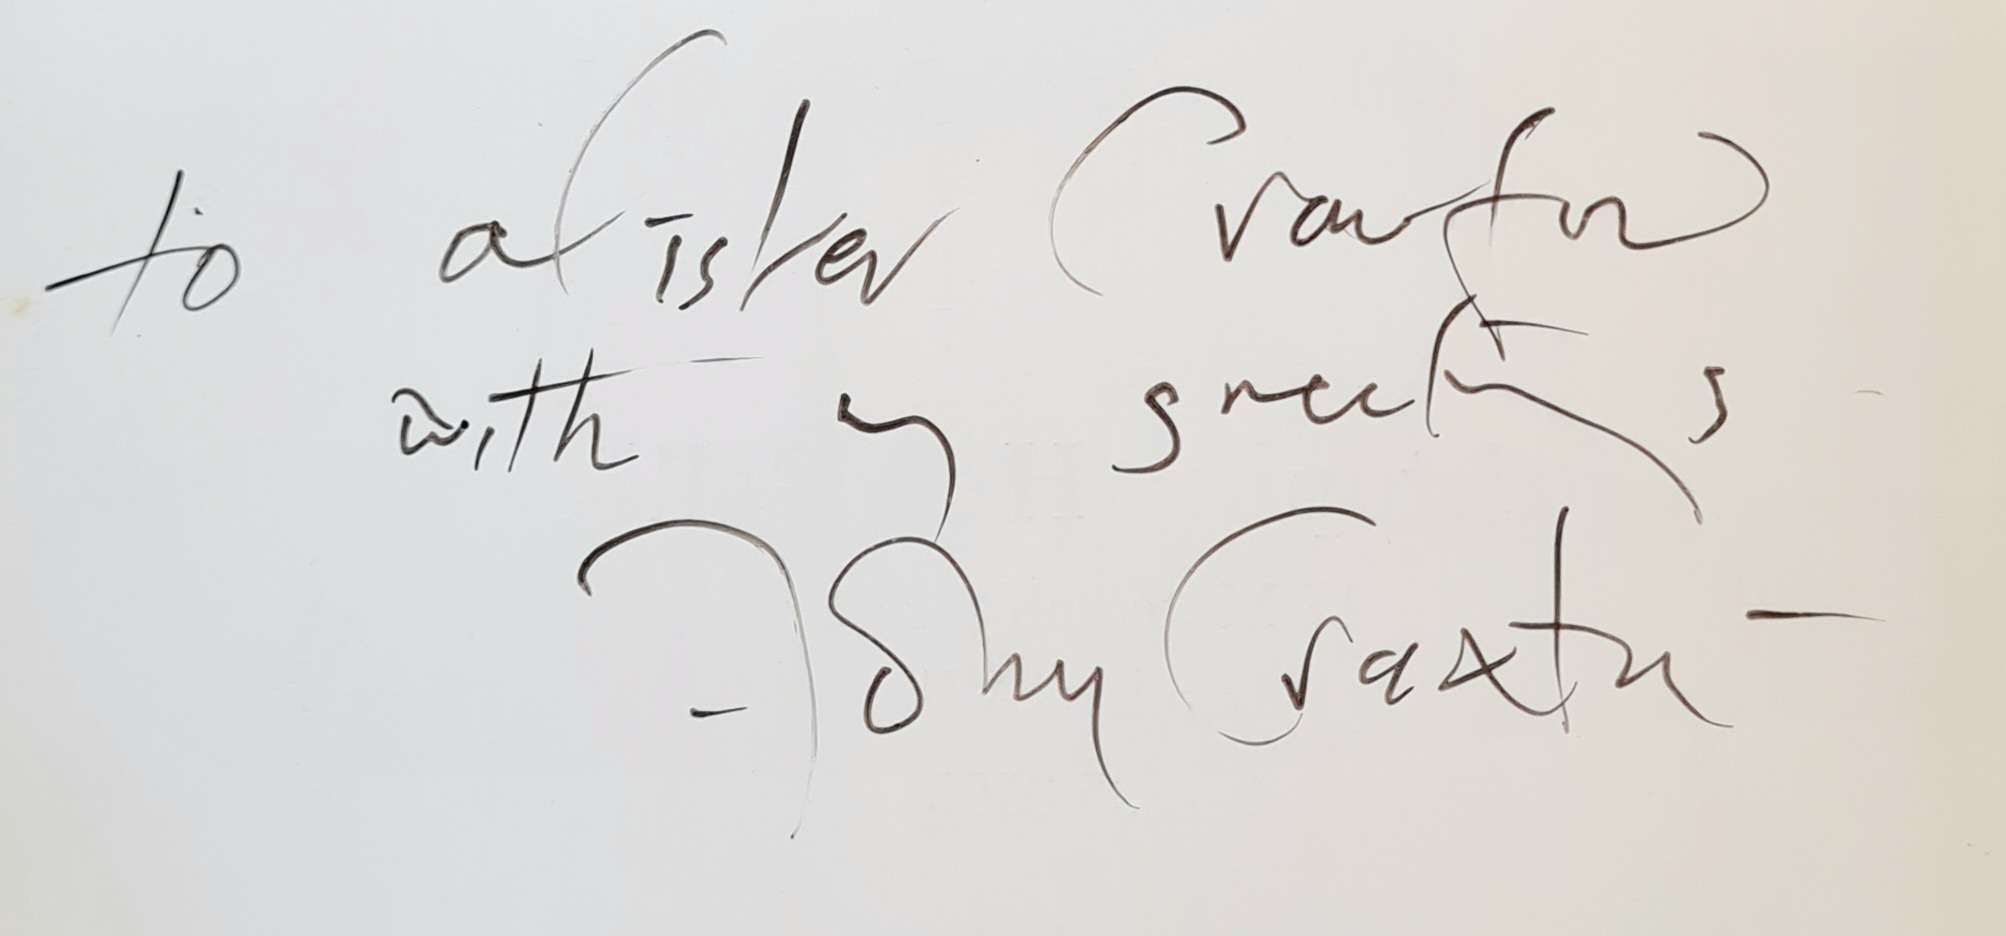 to alister Crawford
with my greetings
- John Craxton -